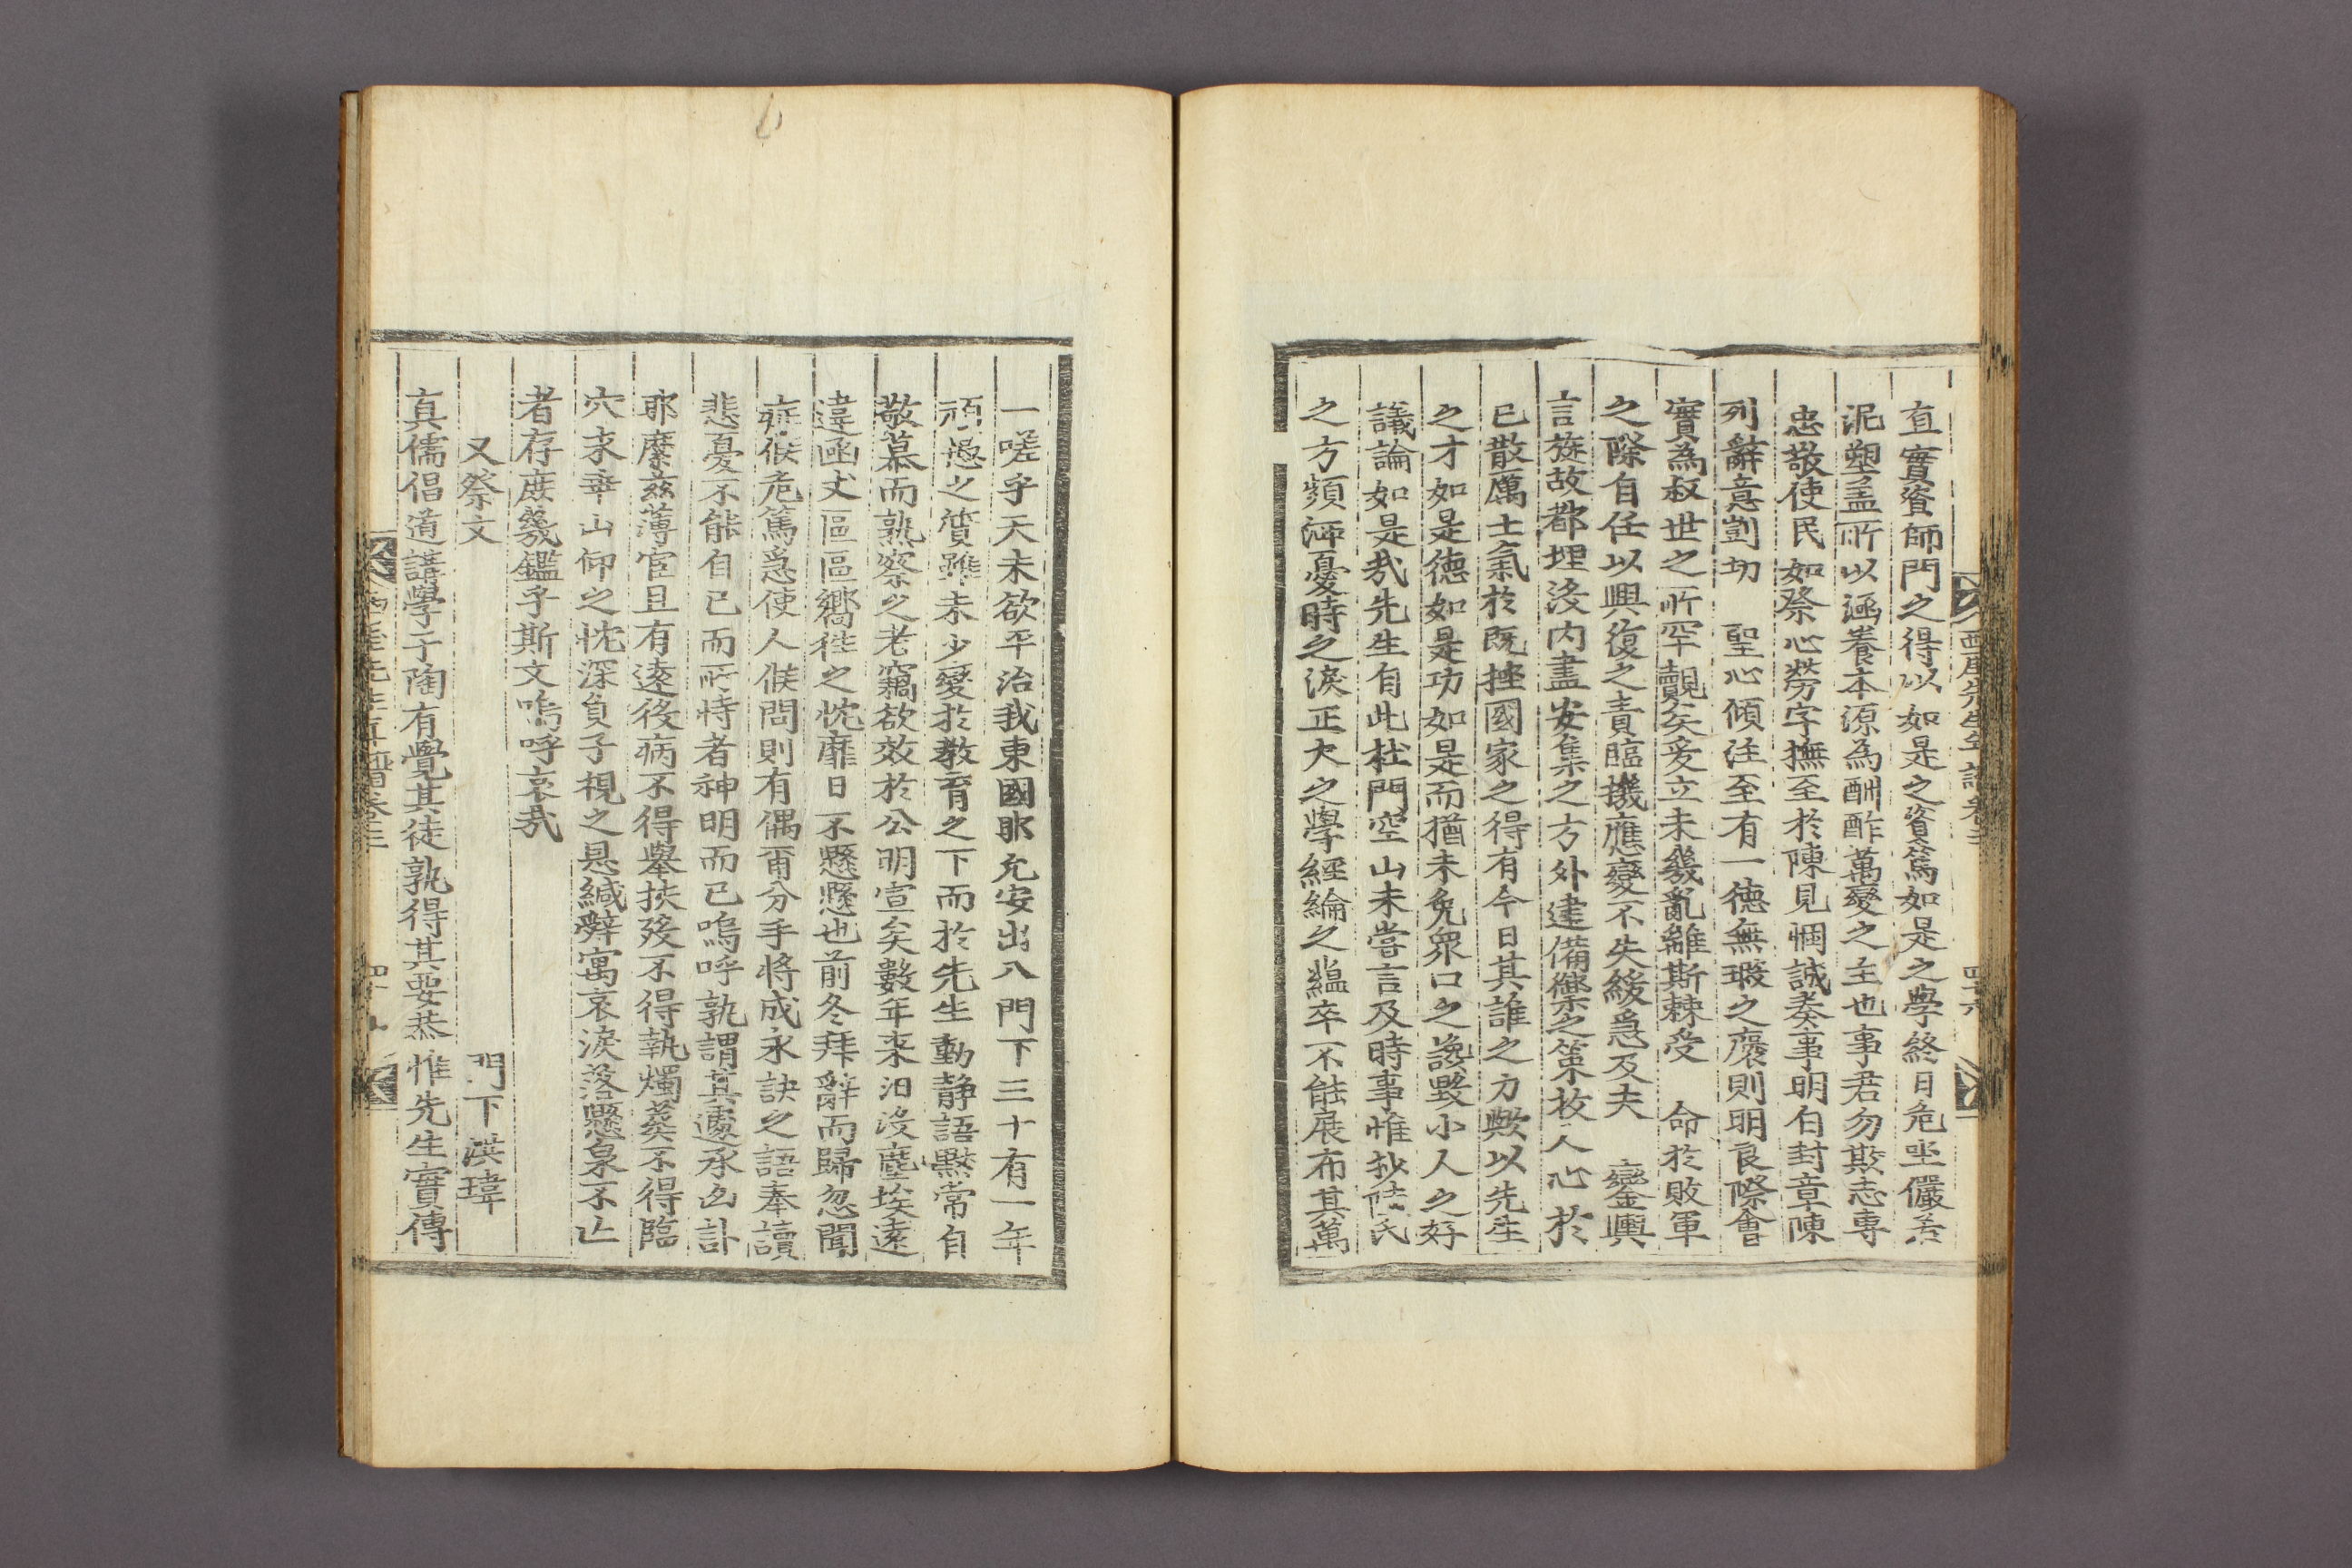 西厓先生年譜卷三
四十六
直實資師門之得以如是之資篤如是之學終日危坐儼若
泥塑盖所以涵養本源為酬酢萬變之主也事君勿欺志專
忠敬使民如祭心勞字撫至於陳見悃誠奏事明白封章陳
列辭意剴切 聖心傾注至有一德無瑕之褒則明良際會
實為叔世之所罕覯矣爰立未幾亂離斯棘受 命於敗軍
之際自任以興復之責臨機應變不失緩急及夫 鑾輿
言旋故都埋沒内盡安集之方外建備禦之策收人心於
已散厲士氣於既挫國家之得有今日其誰之力歟以先生
之才如是德如是功如是而猶未免衆口之讒毀小人之好
議論如是㢤先生有此杜門空山未嘗言及時事惟抄陸氏
之方頻洒憂時之淚正大之學經綸之蘊卒不能展布其萬
一嗟乎天未欲平治我東國耶允安出入門下三十有一年
頑愚之質雖未少變於教育之下而於先生動静語默常自
敬慕而熟察之老竊欲效於公明宣矣數年来汨沒塵埃遠
違函丈區區嚮徃之忱靡日不懸懸也前冬拜辭而歸忽聞
症候危篤急使人候問則有偶爾分手將成永訣之語奉讀
悲憂不能自已而所恃者神明而已嗚呼孰謂其遽承凶訃
耶縻玆薄宦且有遠役病不得舉扶歿不得執燭葬不得臨
穴泰華山仰之忱深負子視之恩緘辭寓哀淚落懸泉不亡
者存庶幾鑑乎斯文嗚呼哀㢤
又祭文 門下洪瑋
真儒倡道講學于陶有覺其徒孰得其要恭惟先生實傳